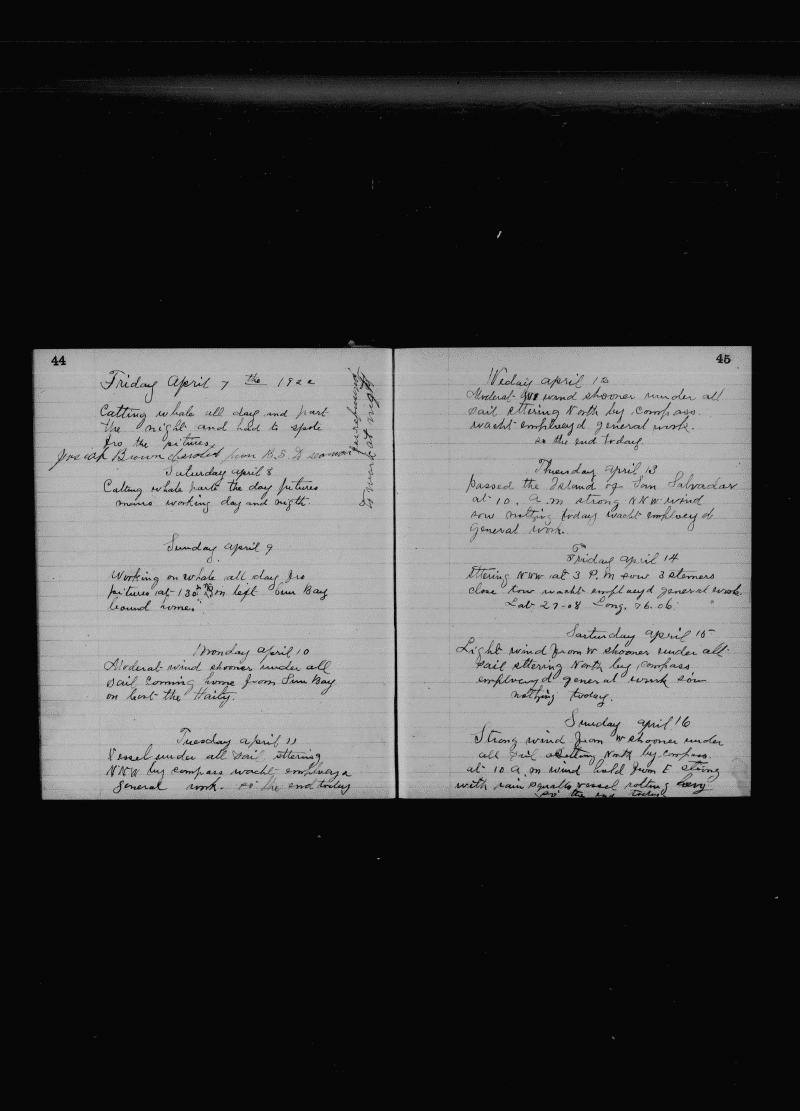 44
Friday April 7 the 1922
Cutting whale all day and part
the night and had to spole
fro the pitures
Josiah Brown from B.S. D seaman
for refusing
to work at night
Saturday April 8
Cutting whale parte the day pitures
mans working day and nigth.
Sunday april 9
Working on whale all day fro
pitures at 130 Pm left Sun Bay
bound homes
Monday april 10
Moderat wind shooner under all
sail Coming home from Sun Bay
on cost the Haity.
Tuesday april 11
Vessel under all sail sttering
NNW by compass wacht employ
General work. so the end today
45
Weday april 12
Moderat wind shooner under all
sail sttering North by Compass.
wacht employed general work.
so the end today.
Thursday april 13
passed the Island of San Salvador
at 10, a.m strong NNW wind
sow nothing today wacht employed
General work.
Friday april 14
Sttering NNW at 3 P.M sow 3 stemers
close tow wacht employed general work.
Lat 27-08 Long. 76.06.
Sarturday april 15
Light wind from W shooner under all
sail sttering North by compass
employed general work sow
nothing today.
Sunday april 16
Strong wind from W shooner under
all sail sttering North by compass.
at 10 a.m wind hald from E strong
with rain squalls vessel rolling hevy
so the end today